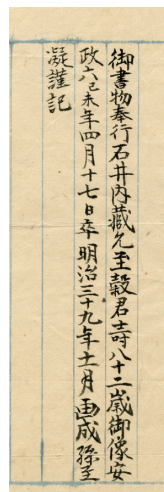 御書物奉行石井内藏允至穀君壽八十二歳御像安
政六己未年四月十七日卒明治三十九年十一月画成孫至
凝謹記